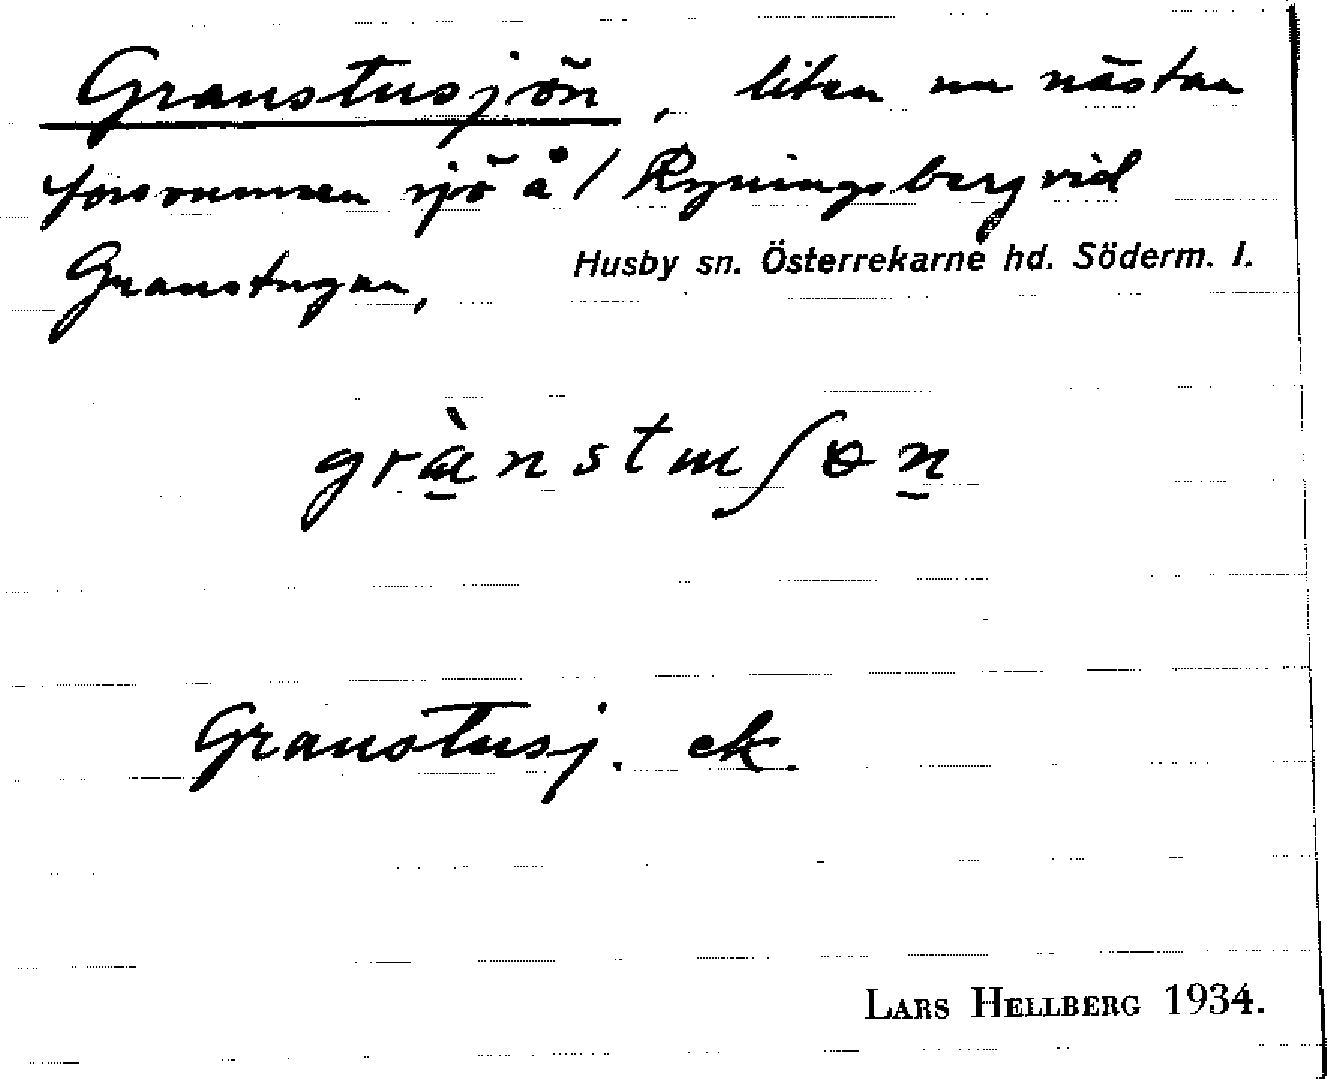 Granstusjön, liten nu nästan
försvunnen sjö å / Ryningsberg vid
Granstugan,
Husby sn. Österrekarne hd. Söderm. l.
grànstuʃɵn
Granstusj. ek.
LARS HELLBERG 1934.